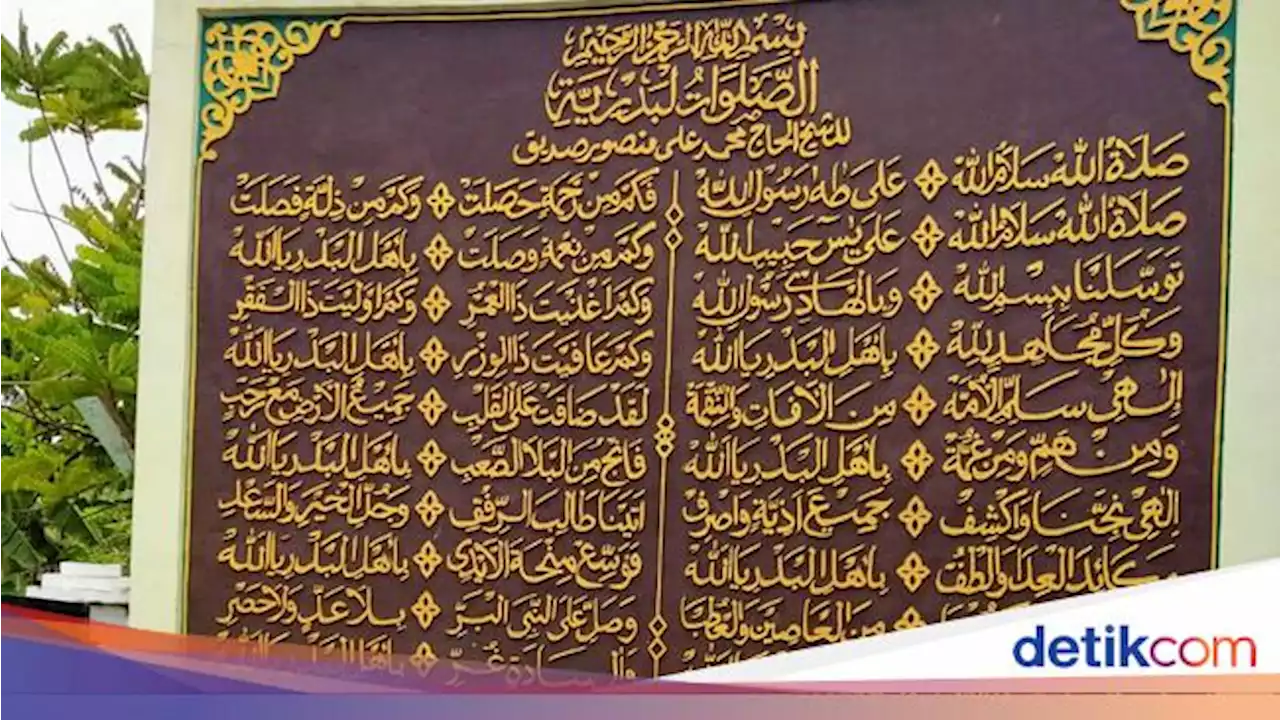 بسم الله الرحمن الرحيم
الصلوات البدرية
للشيخ الحاج محمد على منصور صديق
صلاة الله سلام الله ❖ على طه رسول الله
صلاة الله سلام الله ❖ على يس حبيب الله
توسلنا ببسم الله ❖ وبالهادى رسول الله
وكل مجاهد لله ❖ باهل البدر يا الله
الهى سلم الامة ❖ من الافات والنقمة
ومن هم ومن غمة ❖ باهل البدر يا الله
الهى نجنا واكشف ❖ جميع اذية واصرف
مكائد العدا والطف ❖ باهل البدر يا الله
❖ من العاصين والعطبا
فكم من رحمة حصلت ❖ وكم من ذلة فصلت
وكم من نعمة وصلت ❖ باهل البدر يا الله
وكم اغنيت ذا العمر ❖ وكم اوليت ذا الفقر
وكم عافيت ذا الوزر ❖ باهل البدر يا الله
لقد ضاقت على القلب ❖ جميع الارض مع رحب
فانج من البلا الصعب ❖ باهل البدر يا الله
اتينا طالب الرفق ❖ وجل الخير والسعد
فوسع منحة الايدي ❖ باهل البدر يا الله
وصل على النبى البر ❖ بلا عد ولا حصر
وال سادة غر ❖ باهل البدر يا الله
detikcom